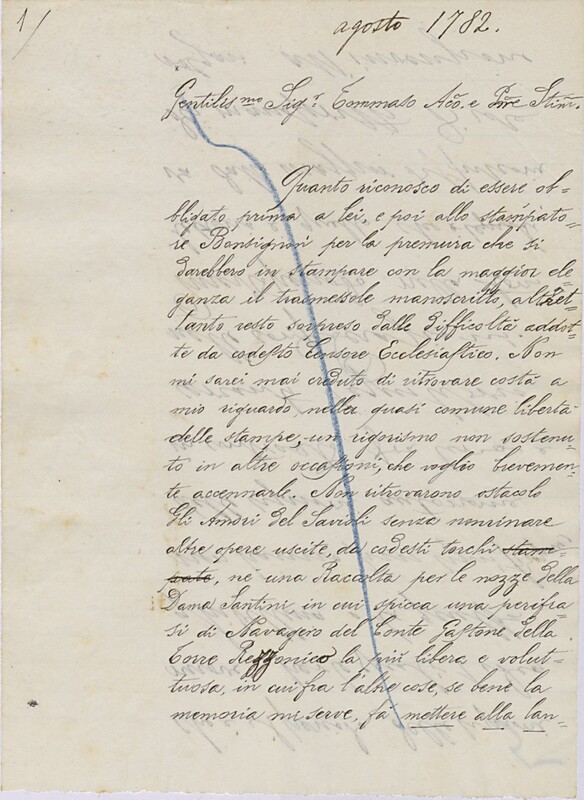 1/
agosto 1782.
Gentilis.mo Sig.r Tommaso Aco. e Pne Stim.
Quanto riconosco di essere ob-
bligato prima a lei, e poi allo stampato=
re Bonsignori per la premura che si
darebbero in stampare con la maggior ele
ganza il trasmessole manoscritto, altret-
tanto resto sorpreso dalle difficoltà addot-
te da codesto Censore Ecclesiastico. Non
mi sarei mai creduto di ritrovare costà a
mio riguardo, nella quasi comune libertà
delle stampe, un rigorismo non sostenu=
to in altre occassioni, che voglio brevemen=
te accennarle. Non ritrovarono ostacolo
Gli Amori del Savioli senza nominare
altre opere uscite, da codesti torchi stam-
pate, nè una Raccolta per le nozze della
Dama Santini, in cui spicca una perifra
si di Navagero del Conte Gastone della
Torre Rezzonico la più libera e volut-
tuosa, in cui fra l'altre cose, se bene la
memoria mi serve, fa mettere alla lan=